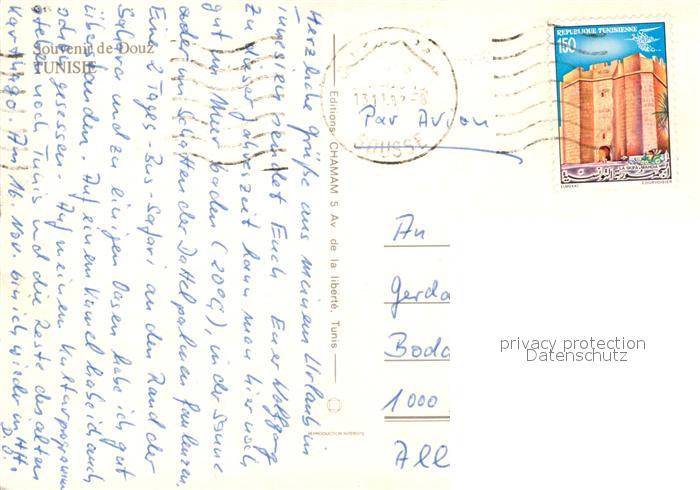 Souvenir de Douz
TUNISIE
Herzliche Grüße aus meinem Urlaub in
Tunesien sendet Euch Euer Wolfgang
Zu dieser Jahreszeit kann man hier noch
gut im Meer baden (20°C), in der Sonne
oder im Schatten der Dattelpalmen faulenzen.
Eine 2 Tages-Bus-Safari an den Rand der
Sahara und zu einigen Oasen habe ich gut
überstanden. Auf einem Kamel habe ich auch
schon gesessen. Auf meinem Kulturprogramm
stehen noch Tunis und die Reste des alten
Karthago. Am 16. Nov. bin ich wieder in
D.O.
Editions CHAMAM 5 Av de la liberté, Tunis
REPRODUCTION INTERDITE
SOUSSE
Par Avion
REPUBLIQUE TUNISIENNE
150
LA SKIFA MAHDIA
الجمهورية التونسية
COURVOISIER
An
Gerda
Bodo
1000
All
privacy protection
Datenschutz